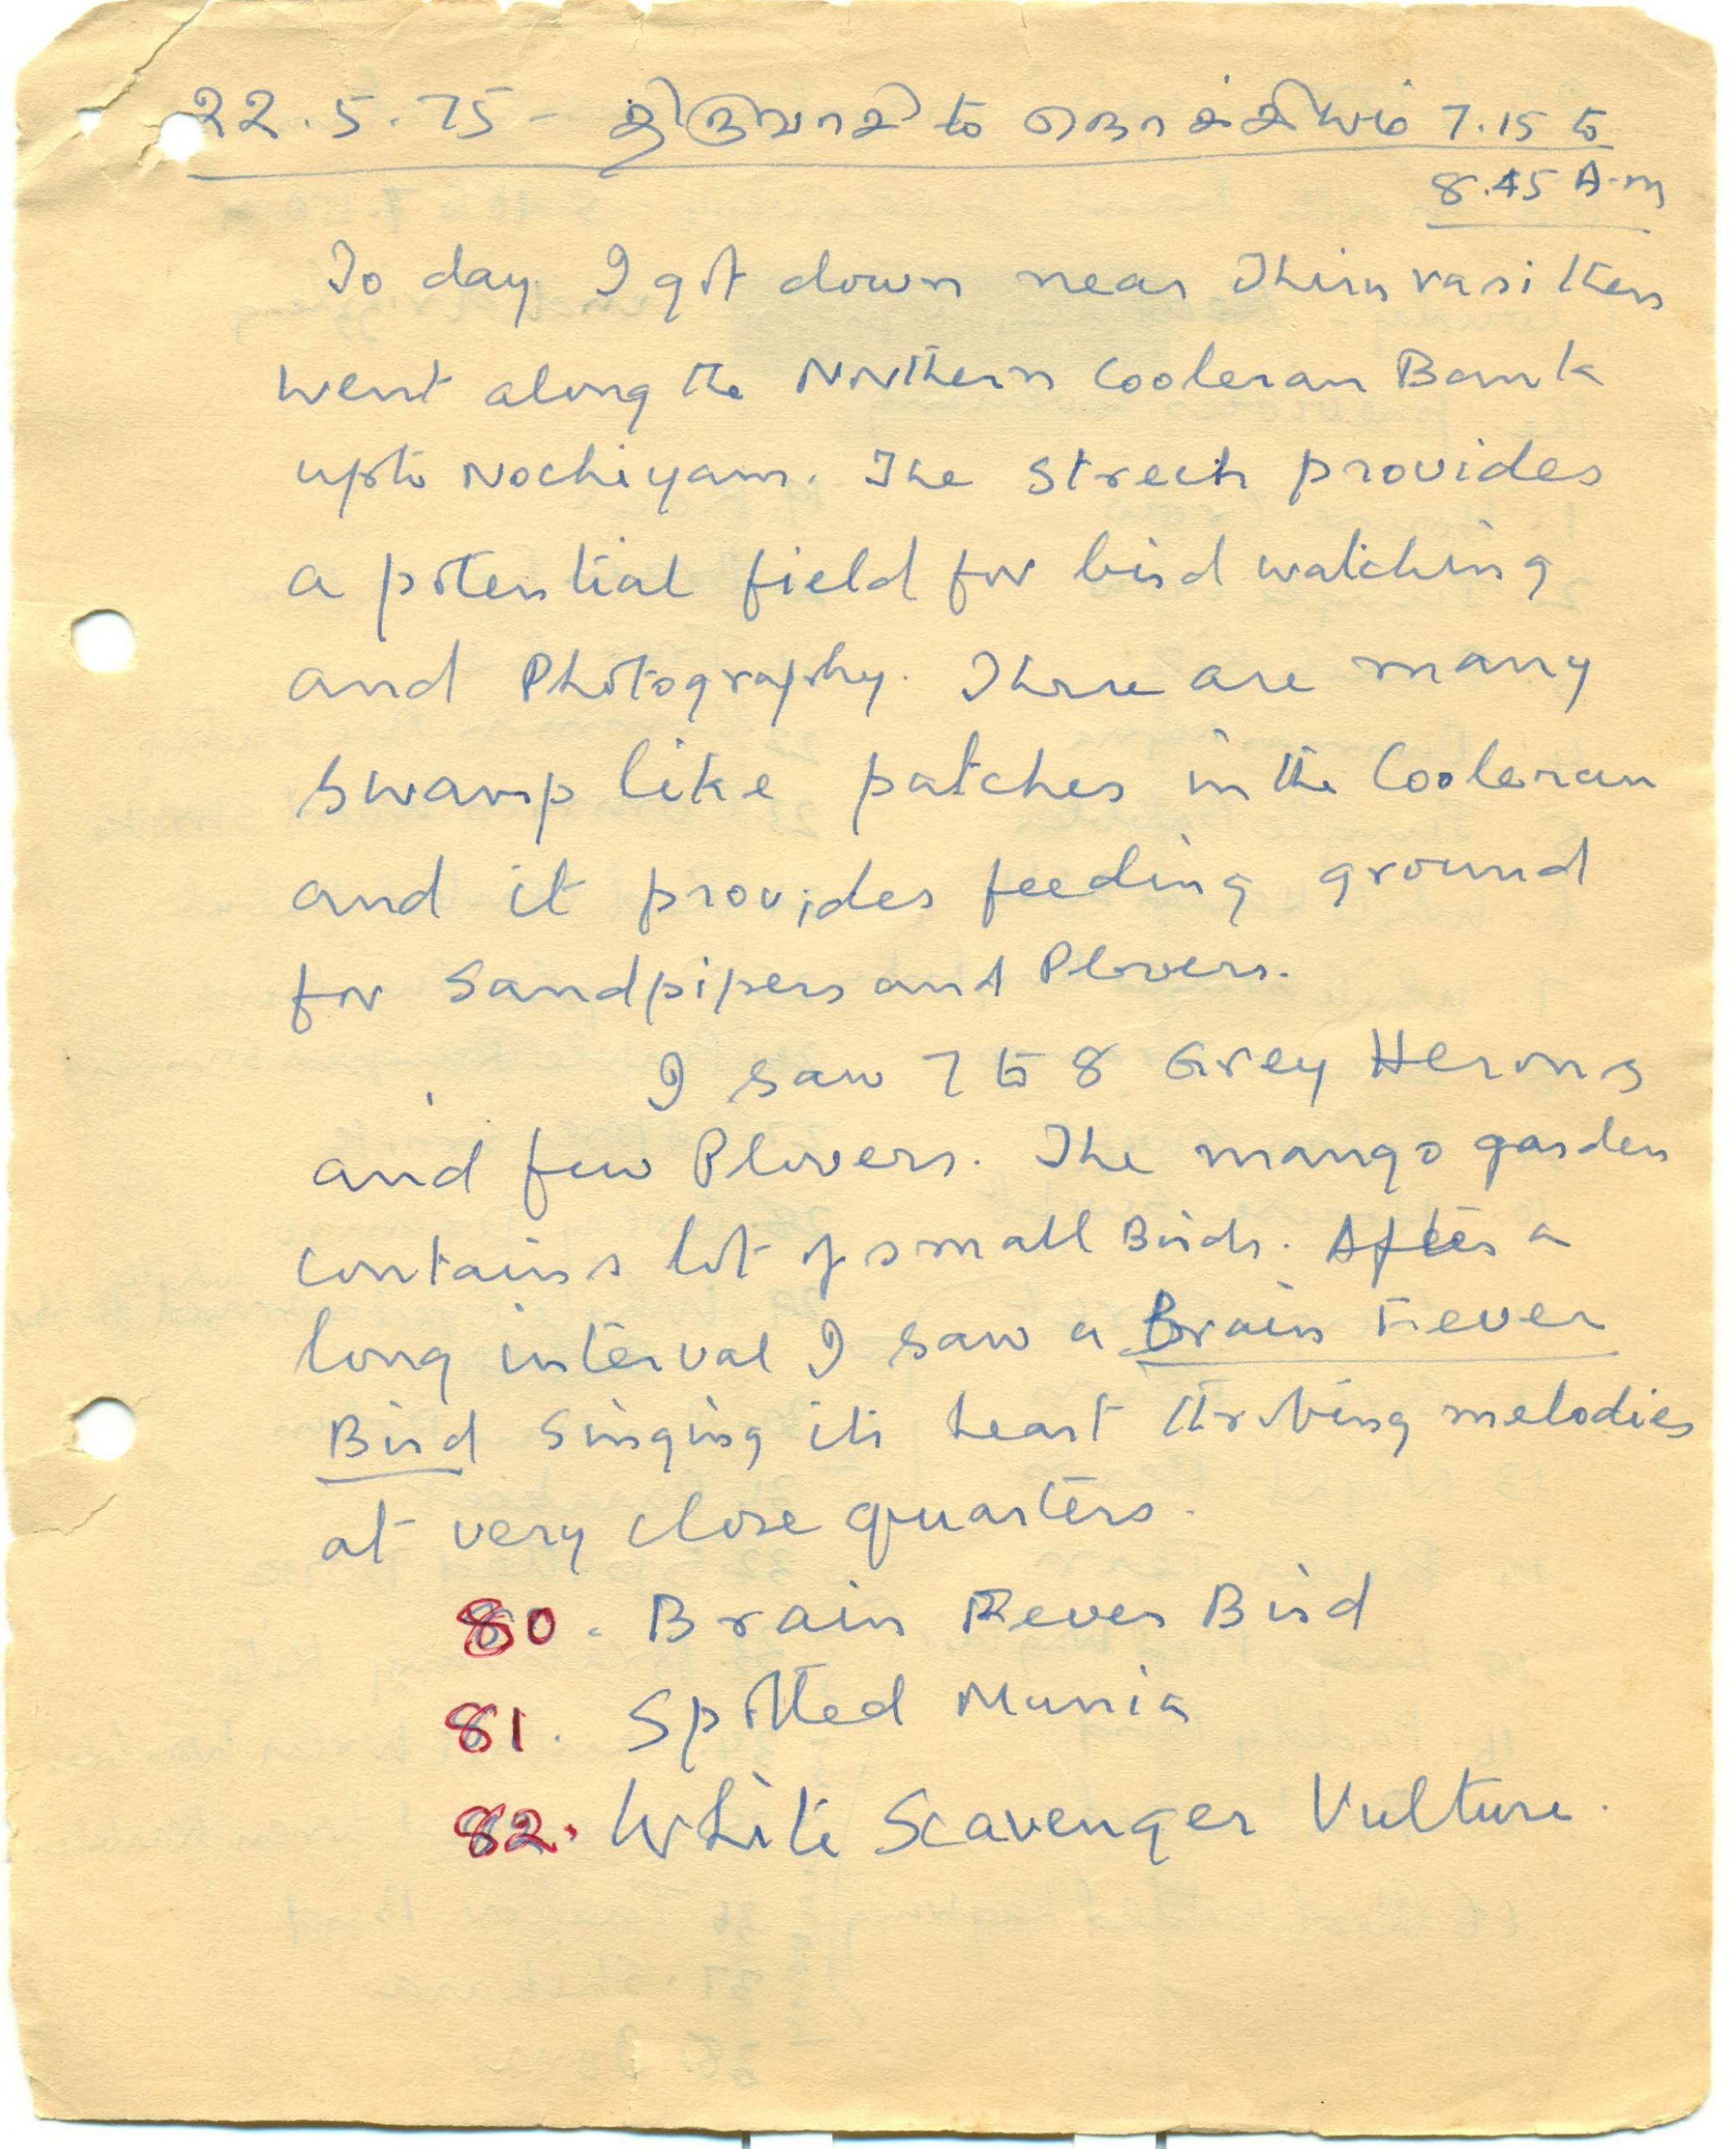 22.5.75 - திருவாசி to நொச்சியம் 7.15 to
8.45 A.m
To day I got down near Thiruvasi then
went along the Northern Cooleran Bank
upto Nochiyam. The Strech provides
a potential field for bird watching
and Photography. There are many
swamp like patches in the Cooleran
and it provides feeding ground
for Sandpipers and Plovers.
I saw 7 to 8 Grey Herons
and few Plovers. The mango garden
contains lot of small Birds. After a
long interval I saw a Brain Fever
Bird singing its heart throbing melodies
at very close quarters.
80. Brain Fever Bird
81. Spotted Munia
82. White Scavenger Vulture.